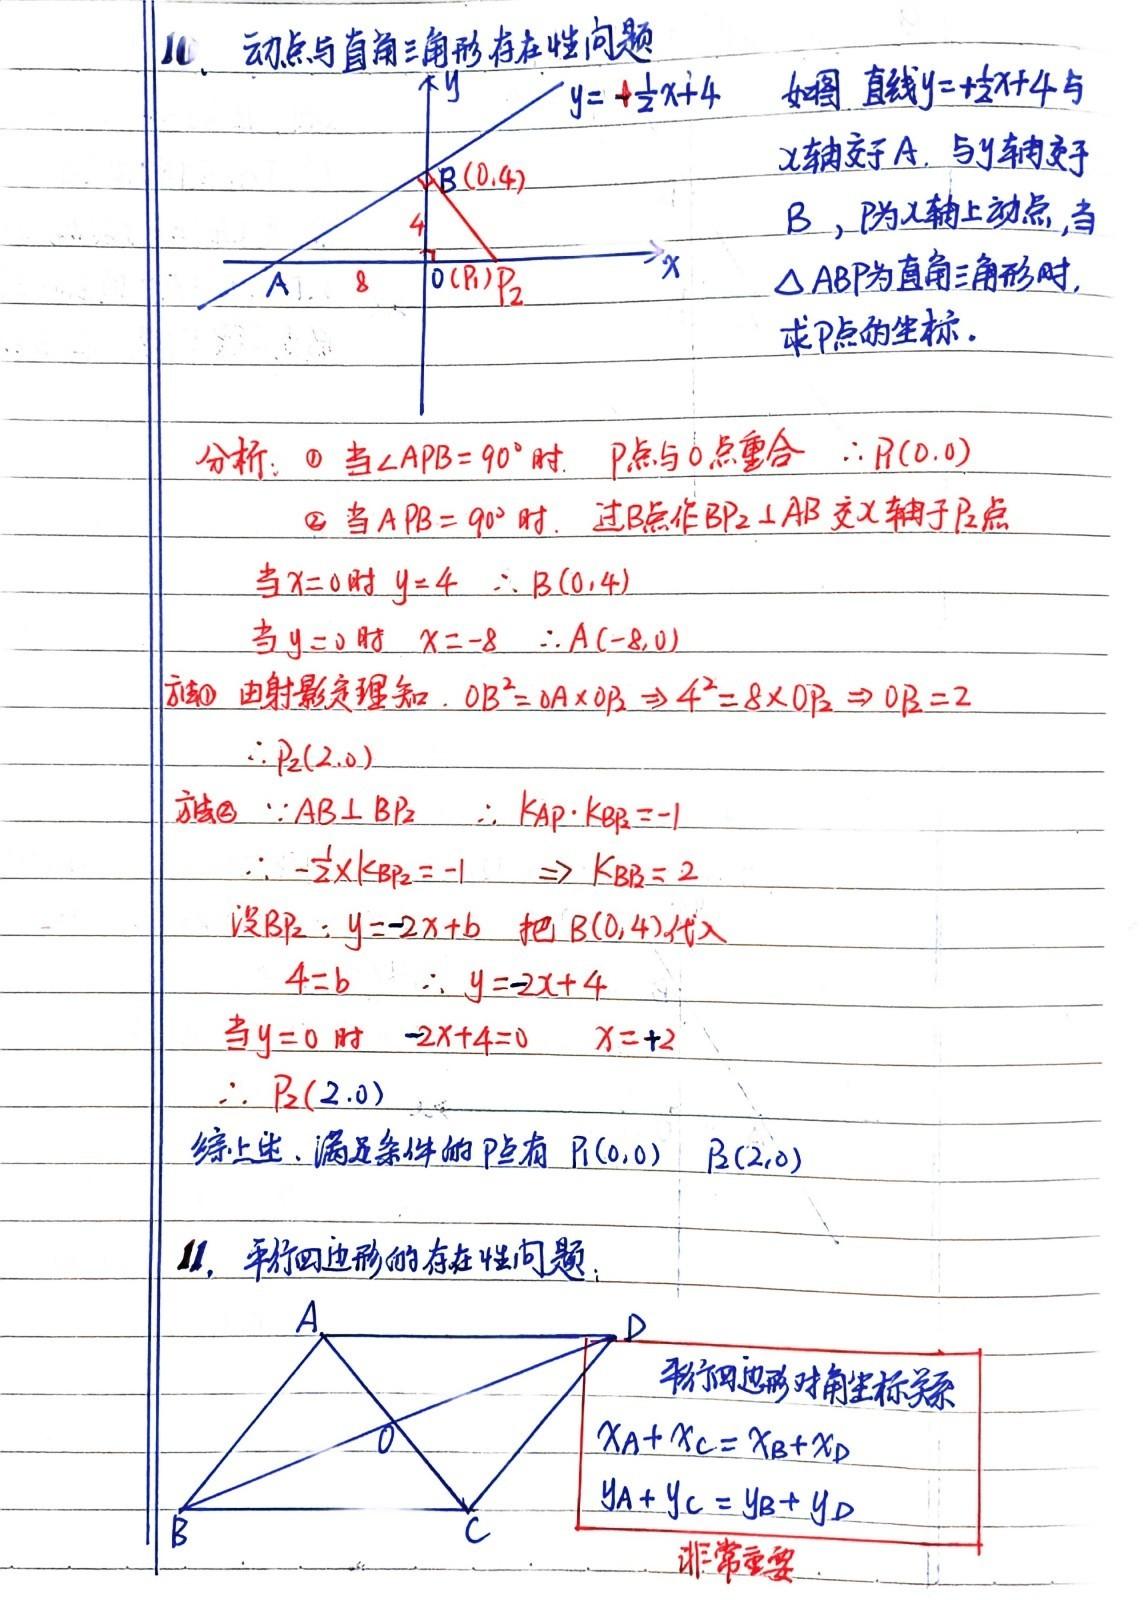 10、动点与直角三角形存在性问题
y
y=+½x+4
B(0,4)
4
A
8
O(P₁)
P₂
x
如图 直线y=+½x+4与
x轴交于A.与y轴交于
B,P为x轴上动点,当
△ABP为直角三角形时,
求P点的坐标.
分析:① 当∠APB=90°时. P点与O点重合 ∴P₁(0.0)
② 当APB=90°时. 过B点作BP₂⊥AB交x轴于P₂点
当x=0时 y=4 ∴B(0,4)
当y=0时 x=-8 ∴A(-8,0)
方法① 由射影定理知. OB²=OA×OP₂⇒4²=8×OP₂⇒OP₂=2
∴P₂(2.0)
方法② ∵AB⊥BP₂ ∴KAP·KBP₂=-1
∴-½×KBP₂=-1 ⇒KBP₂=2
设BP₂:y=-2x+b 把B(0,4)代入
4=b ∴y=-2x+4
当y=0时 -2x+4=0 x=+2
∴P₂(2.0)
综上述、满足条件的P点有 P₁(0,0) P₂(2,0)
11、平行四边形的存在性问题:
A
D
O
B
C
平行四边形对角坐标关系
xA+xC=xB+xD
yA+yC=yB+yD
非常重要